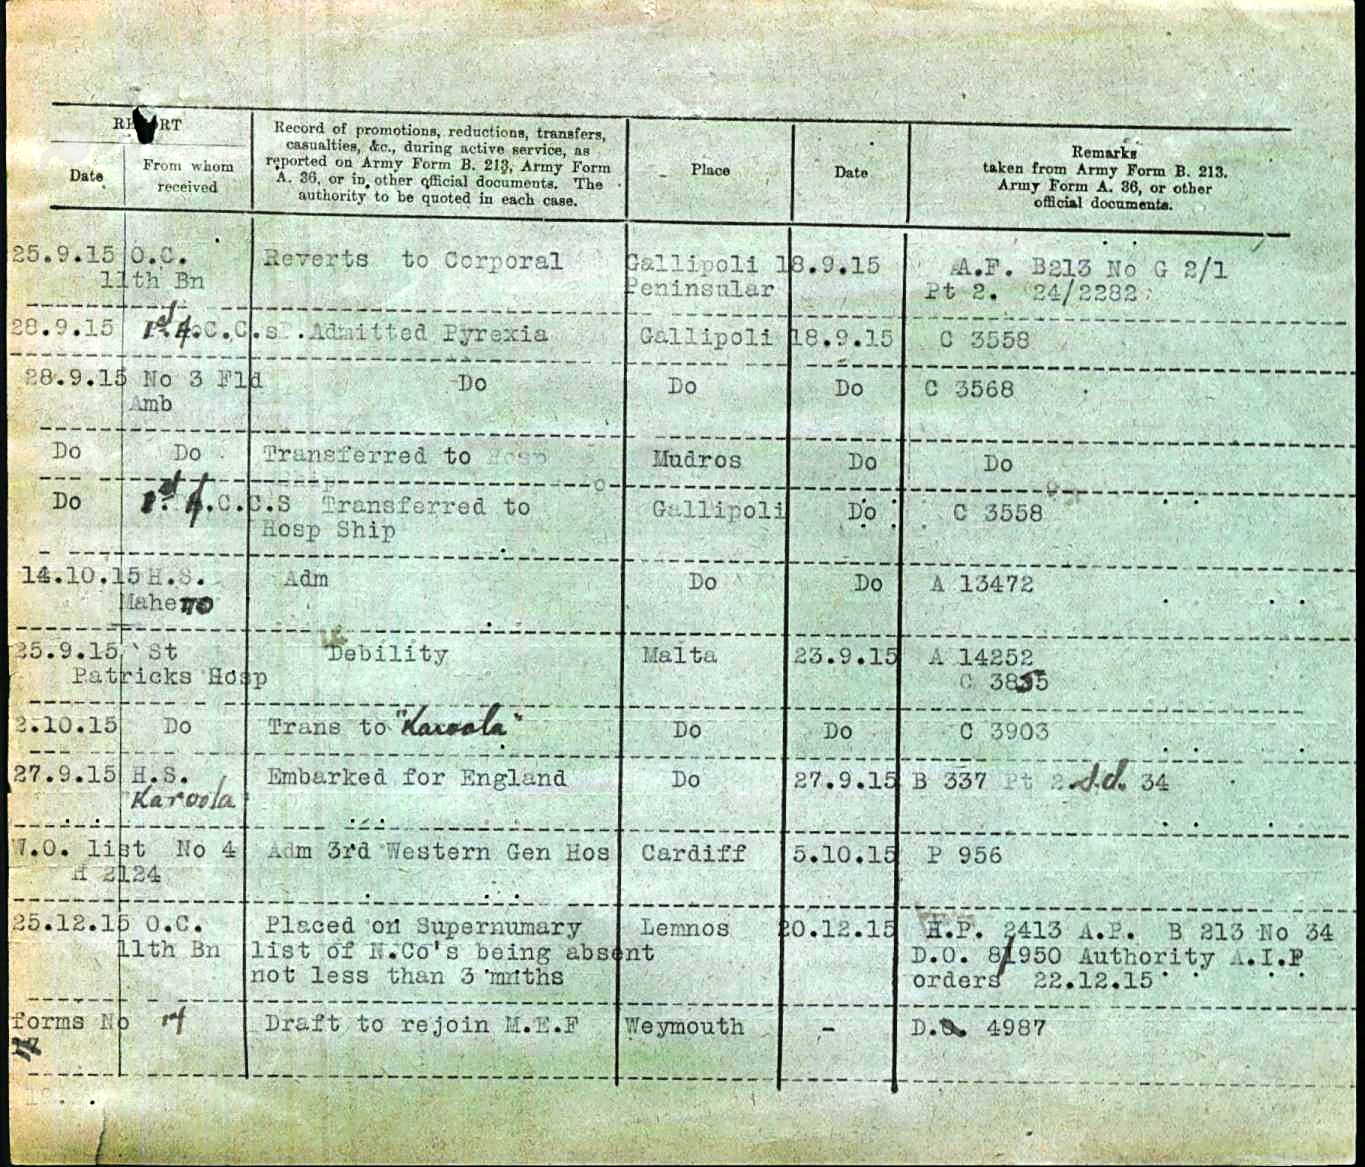 Date
From whom
received
Record of promotions, reductions, transfers,
casualties, &c., during active service, as
reported on Army Form B. 213, Army Form
A. 36, or in other official documents. The
authority to be quoted in each case.
Place
Date
Remarks
taken from Army Form B. 213.
Army Form A. 36, or other
official documents.
25.9.15 O.C. Reverts to Corporal Gallipoli 18.9.15 A.F. B213 No G 2/1
11th Bn Peninsular Pt 2. 24/2282
28.9.15 1st A.C.C.s Admitted Pyrexia Gallipoli 18.9.15 C 3558
28.9.15 No 3 Fld Do Do Do C 3568
Amb
Do Do Transferred to Hosp Mudros Do Do
Do 1st A.C.C.S Transferred to Gallipoli Do C 3558
Hosp Ship
14.10.15 H.S. Adm Do Do A 13472
Maheno
25.9.15 St Debility Malta 23.9.15 A 14252
Patricks Hosp C 3855
2.10.15 Do Trans to "Karoola" Do Do C 3903
27.9.15 H.S. Embarked for England Do 27.9.15 B 337 Pt 2 s.d. 34
"Karoola"
W.O. list No 4 Adm 3rd Western Gen Hos Cardiff 5.10.15 P 956
H 2124
25.12.15 O.C. Placed on Supernumary Lemnos 20.12.15 H.P. 2413 A.P. B 213 No 34
11th Bn list of N.Co's being absent D.O. 8/1950 Authority A.I.F
not less than 3 mnths orders 22.12.15
forms No Draft to rejoin M.E.F Weymouth - D.O. 4987